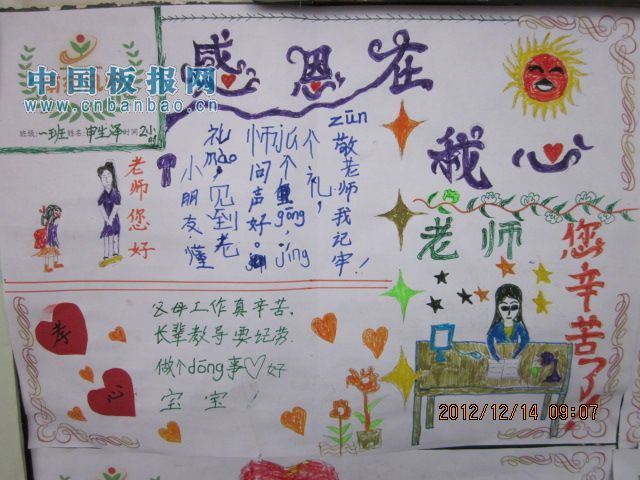 感恩在
我心
中国板报网
www.cnbanbao.cn
班级:一班 姓名:申生泽 时间
zūn
敬老师我记牢!
个礼,
师弘个gōng,jīng
师问声好。
礼mào,见到老
小朋友,懂
老师您好
老师
您辛苦了
父母工作真辛苦.
长辈教导要经常
做个dōng事♡好
宝宝!
孝
心
2012/12/14 09:07